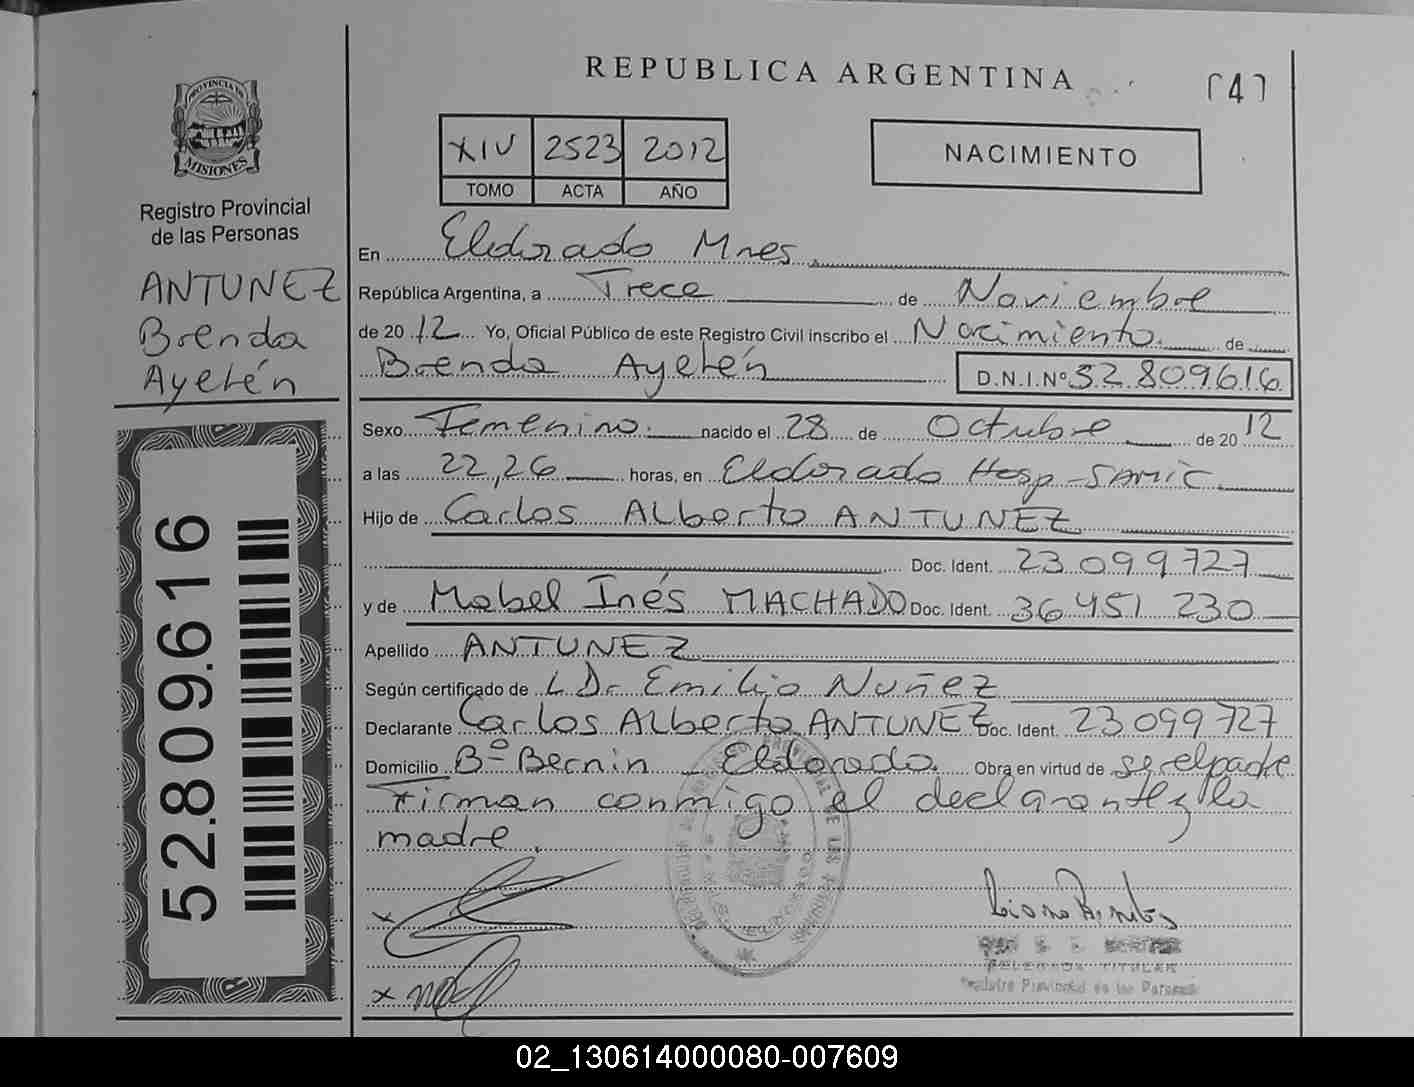 REPUBLICA ARGENTINA
[4]
PROVINCIA DE
MISIONES
Registro Provincial
de las Personas
ANTUNEZ
Brenda
Ayelén
52.809.616
XIV 2523 2012
TOMO ACTA AÑO
NACIMIENTO
En Eldorado Mnes.
República Argentina, a Trece de Noviembre
de 2012 Yo, Oficial Público de este Registro Civil inscribo el Nacimiento de
Brenda Ayelén D.N.I.Nº 52.809.616
Sexo Femenino. nacido el 28 de Octubre de 2012
a las 22,26 horas, en Eldorado Hosp-SAMIC.
Hijo de Carlos Alberto ANTUNEZ
Doc. Ident. 23 099 727
y de Mabel Inés MACHADO Doc. Ident. 36 451 230
Apellido ANTUNEZ
Según certificado de Dr Emilio Nuñez
Declarante Carlos Alberto ANTUNEZ Doc. Ident. 23 099 727
Domicilio Bº Bernin - Eldorado. Obra en virtud de ser el padre
Firman conmigo el declarante y la
madre.
DELEGADA TITULAR
Registro Provincial de las Personas
02_130614000080-007609